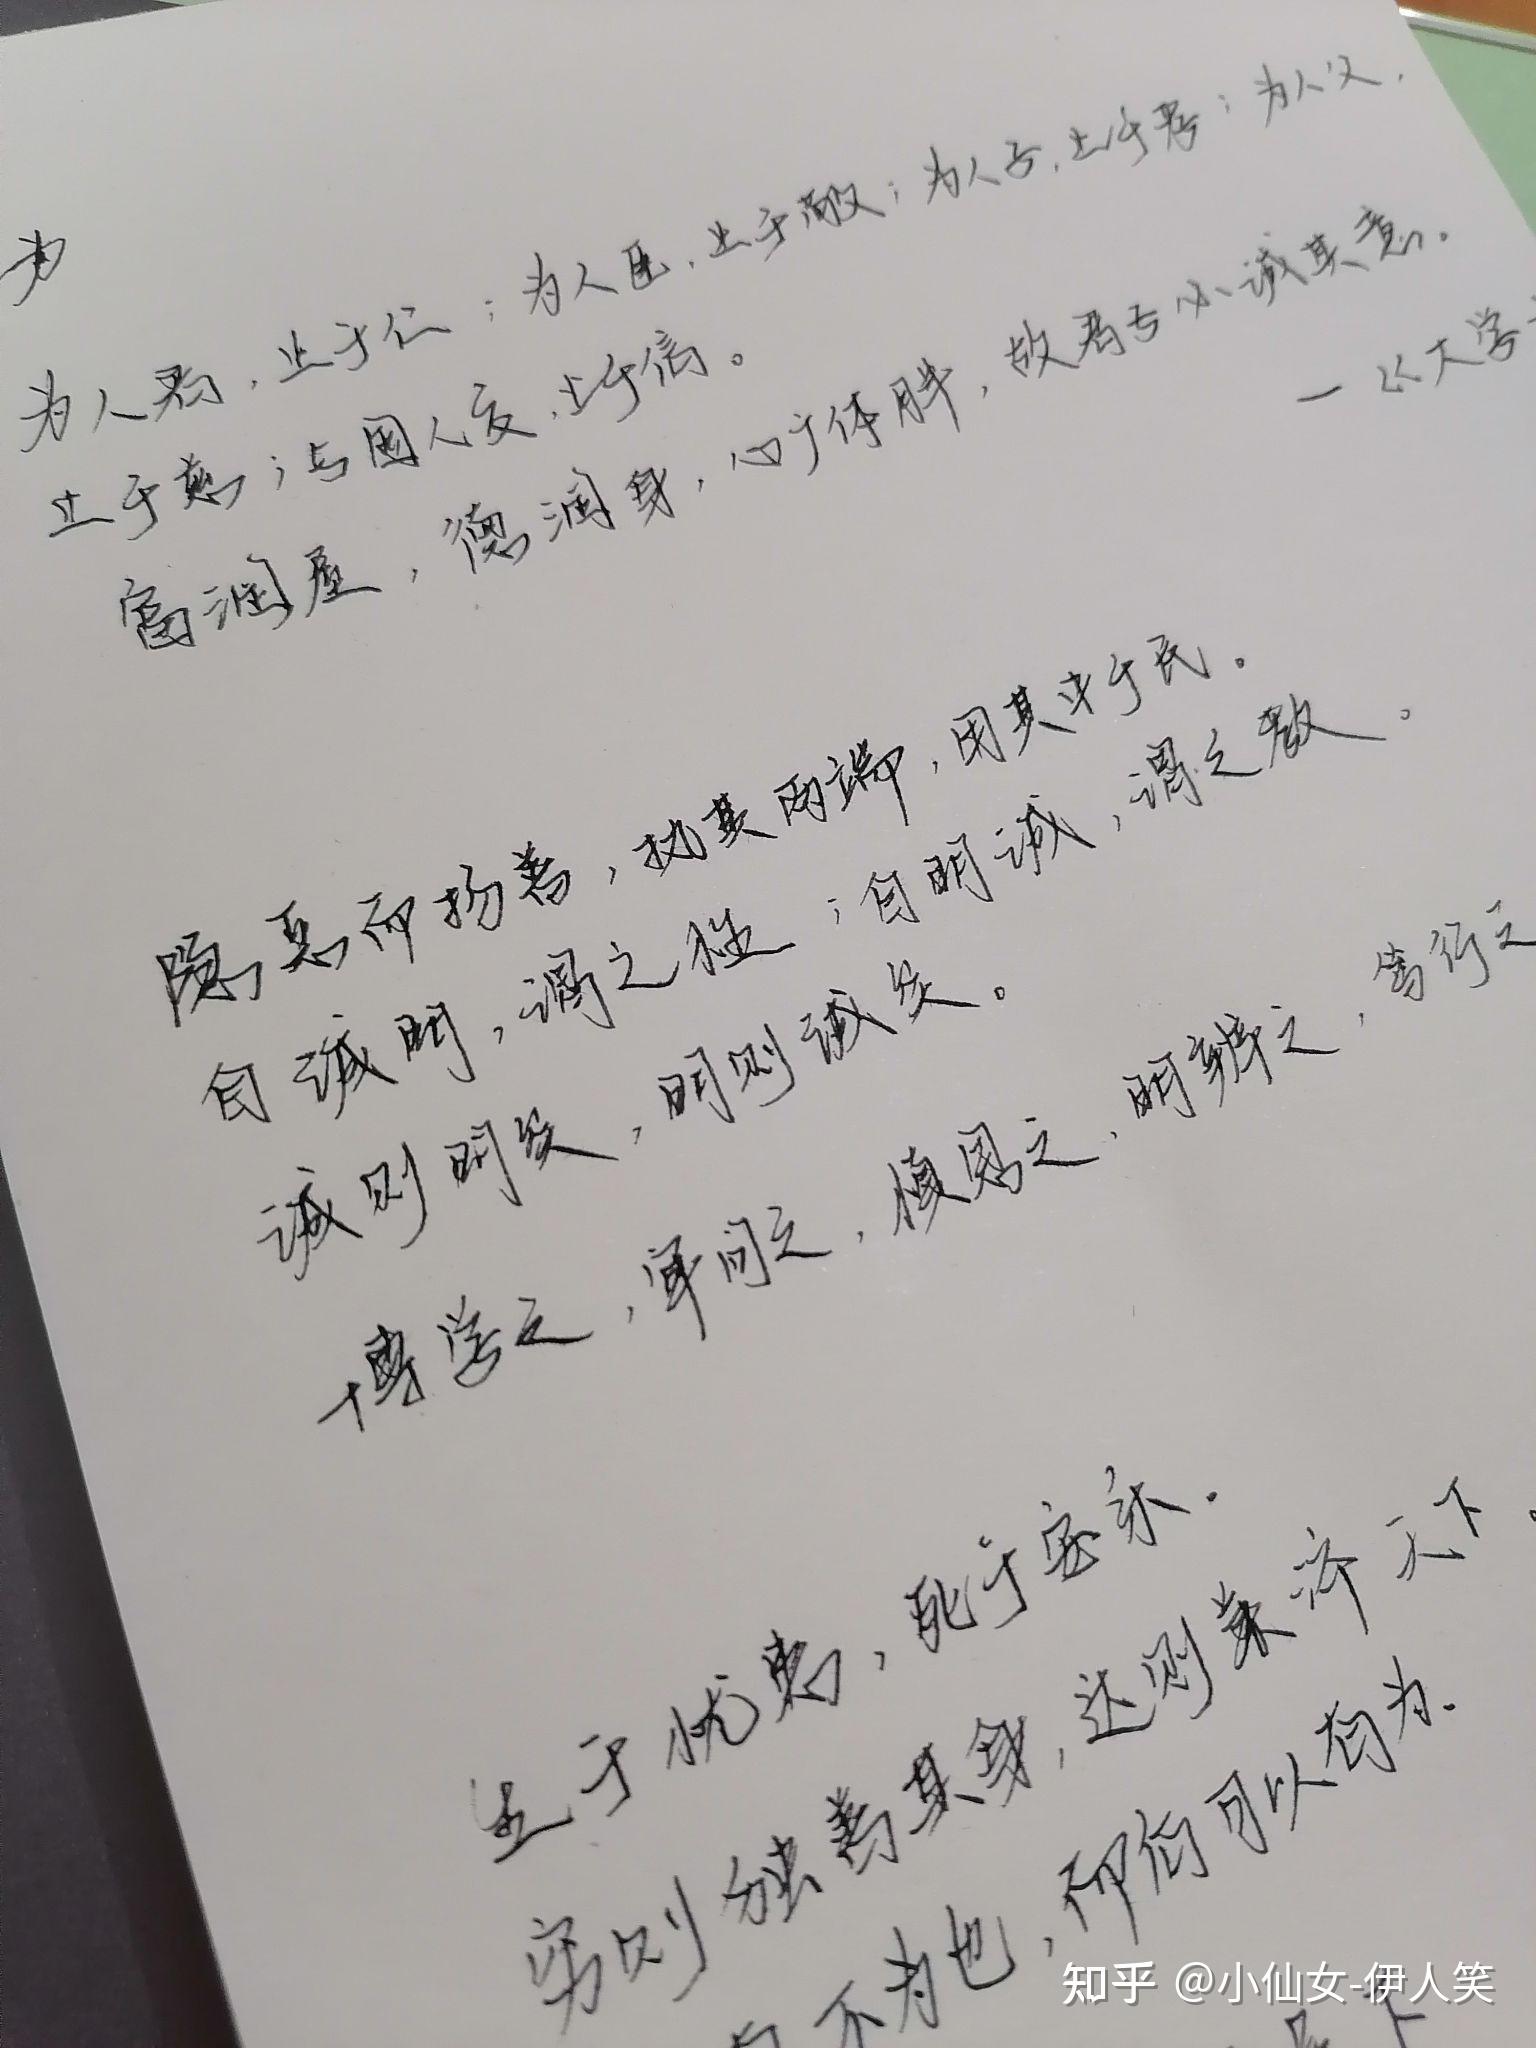 为
为人君，止于仁；为人臣，止于敬；为人子，止于孝；为人父，
止于慈；与国人交，止于信。
富润屋，德润身，心广体胖，故君子必诚其意。
—《大学
隐恶而扬善，执其两端，用其中于民。
自诚明，谓之性；自明诚，谓之教。
诚则明矣，明则诚矣。
博学之，审问之，慎思之，明辨之，笃行之
生于忧患，死于安乐。
穷则独善其身，达则兼济天下。
不为也，而后可以有为。
知乎 @小仙女-伊人笑